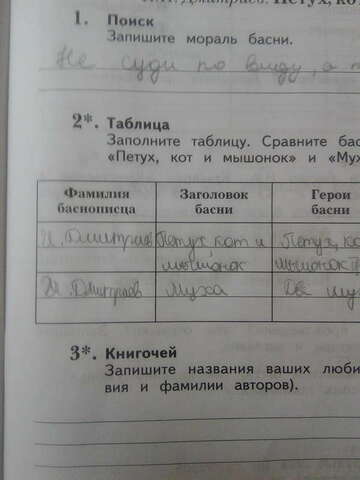 И.И. Дмитриев. Петух, ко
1. Поиск
Запишите мораль басни.
Не суди по виду, а п
2*. Таблица
Заполните таблицу. Сравните бас
«Петух, кот и мышонок» и «Мух
Фамилия баснописца
Заголовок басни
Герои басни
И. Дмитриев
Петух, кот и мышонок
Петух, ко
мышонок
И. Дмитриев
Муха
Две му
3*. Книгочей
Запишите названия ваших люби
вия и фамилии авторов).